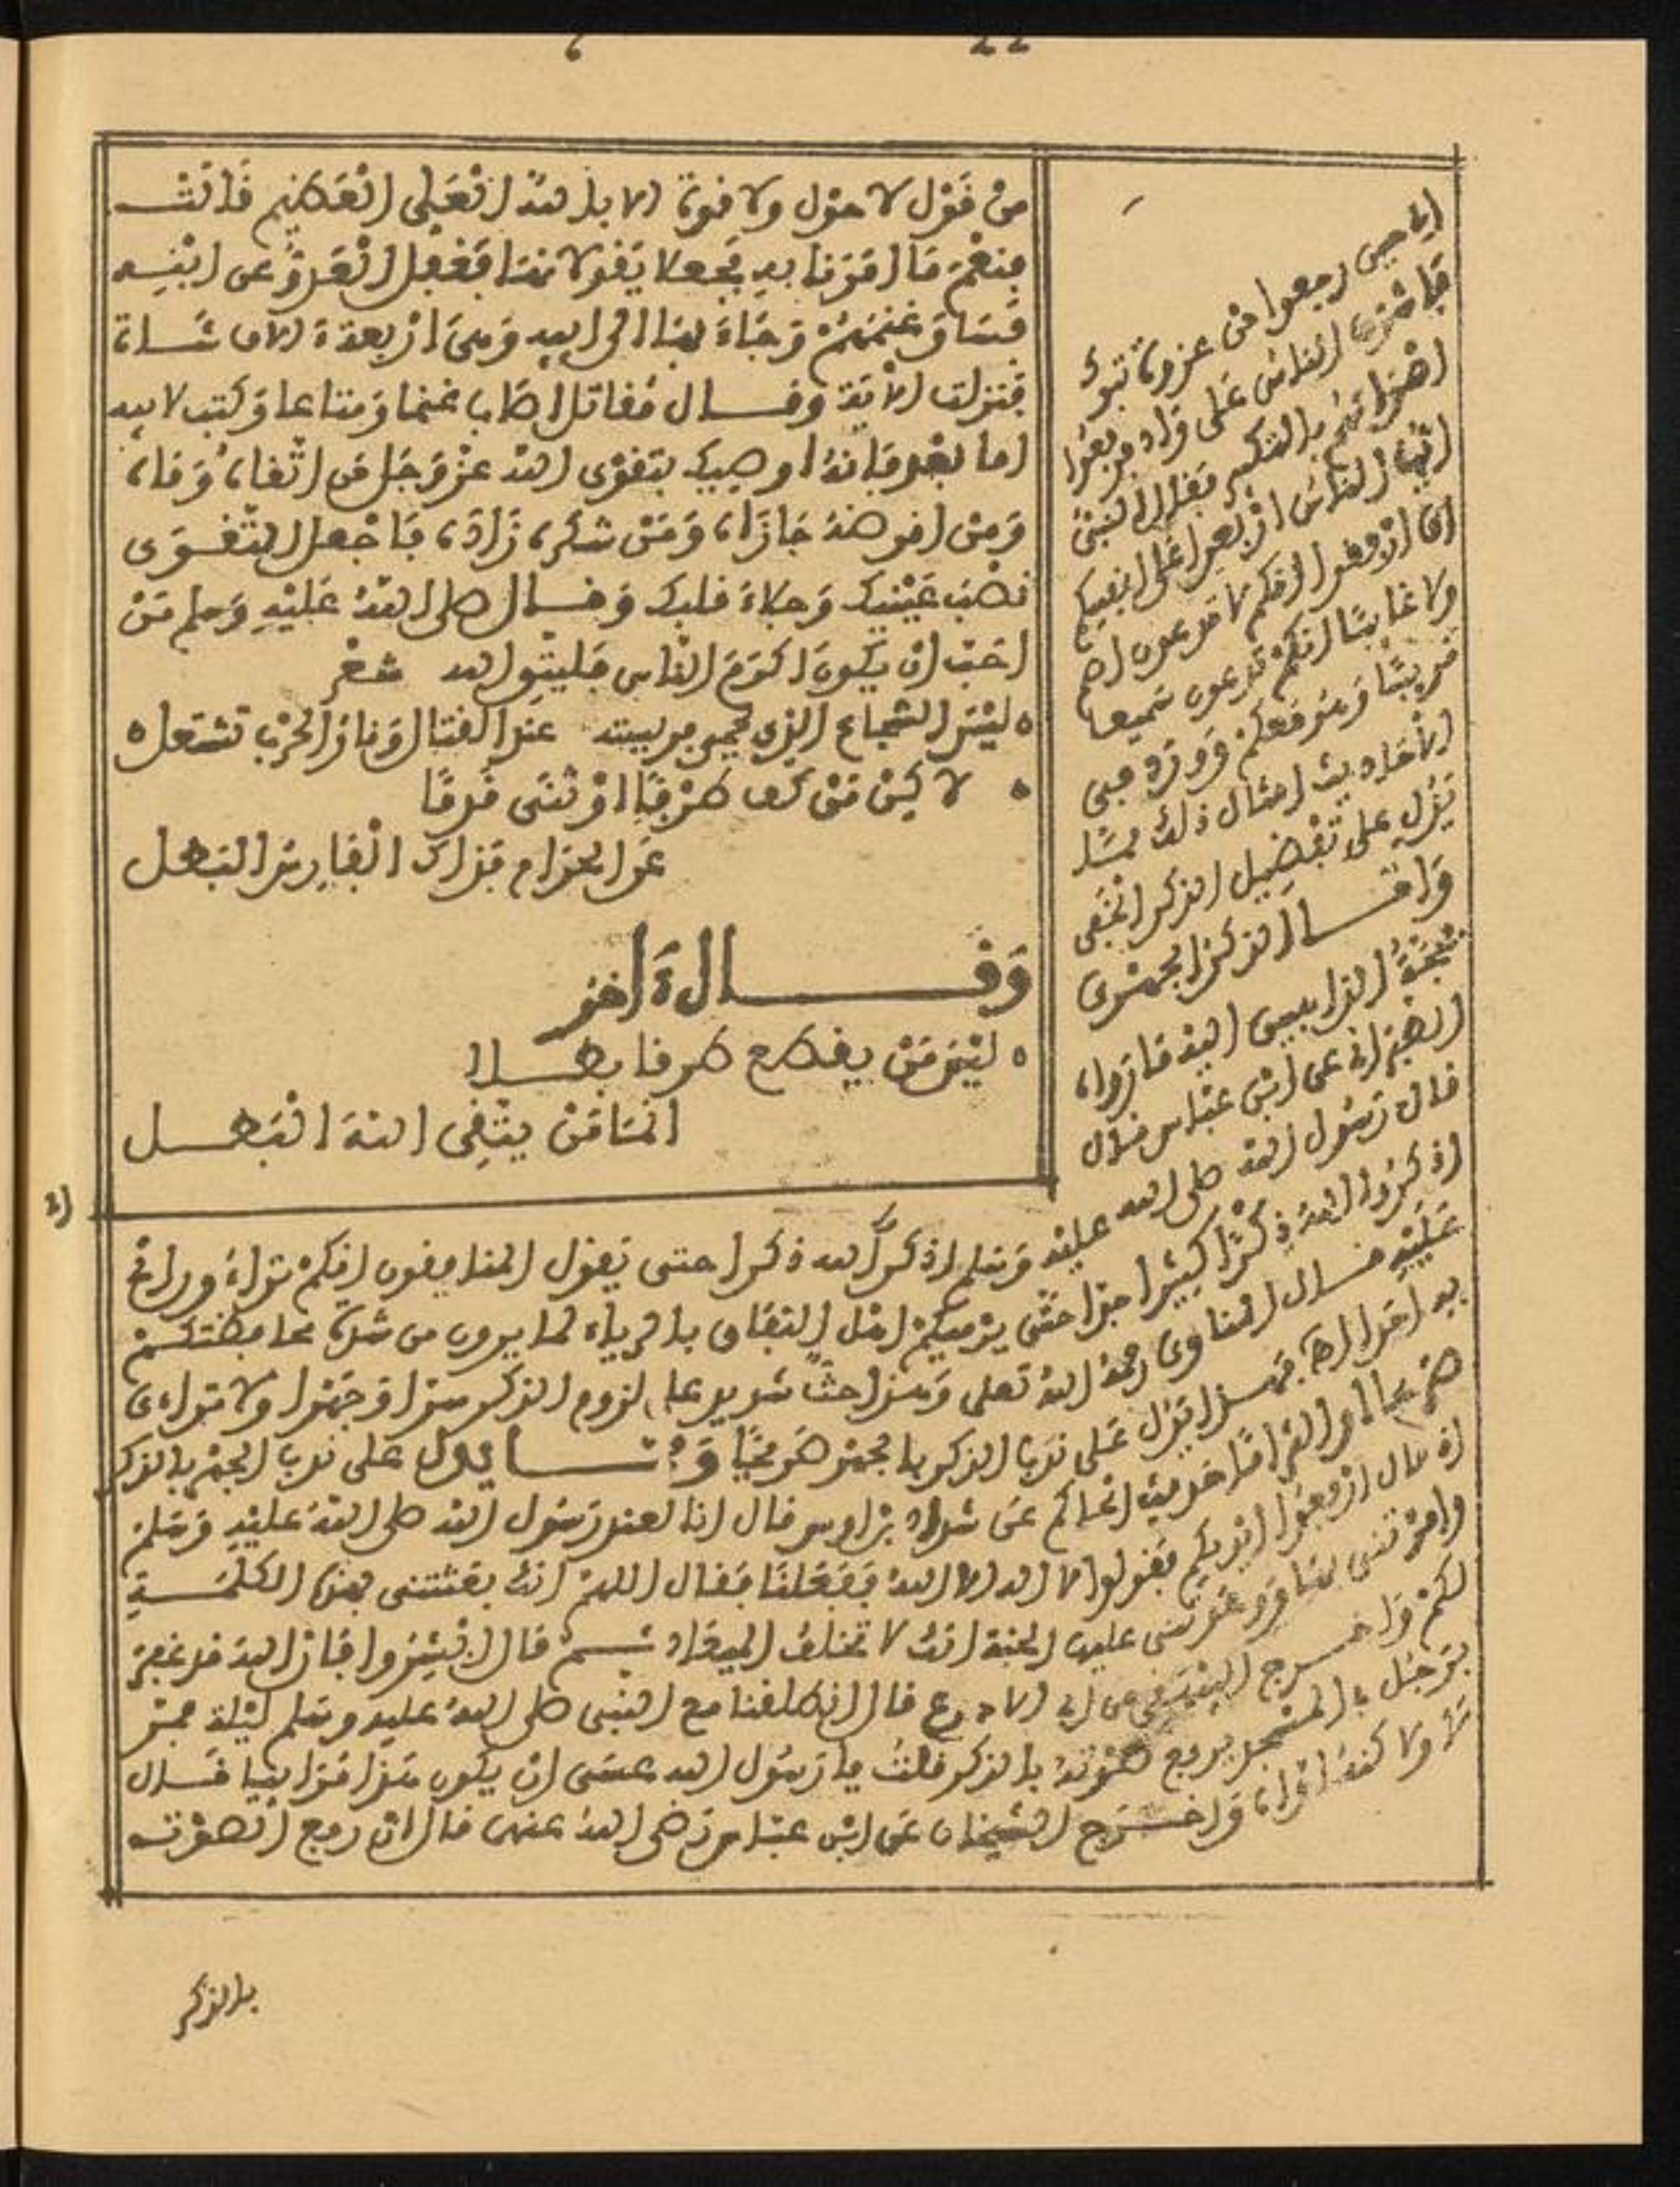 من قول لا حول ولا قوة الا بالله العلي العظيم فقالت
منعم ما امرنا به فجعلا يقولانها فغفل العدو عن ابنه
فساق غنمهم وجاء بها الى ابيه وهى اربعة ءالاف شاة
فنزلت الاية وقال مقاتل اصاب غنما ومتاعا وكتب لابيه
اما بعد فانه اوصيك بتقوى الله عز وجل من اتقاه وقاه
ومن اقرضه جازاه ومن شكره زاده فاجعل التقوى
نصب عينيك وجلاء قلبك وقال صلى الله عليه وسلم من
احب ان يكون اكرم الناس فليتق الله شعر
ليس الشجاع الذي يحمي فريسته عند القتال ونار الحرب تشتعل
لاكن من كف طرفا او ثنى قدما
عن الحرام فذاك الفارس البطل
وقال ءاخر
ليس من يقطع طرقا بطلا
انما من يتقي الله البطل
اي حين رجعوا من غزوة تبوك
فاشرف الناس على واد فرفعوا
اصواتهم بالتكبير فقال النبي
ايها الناس اربعوا على انفسكم
اي ارفقوا انكم لا تدعون اصم
ولا غايبا انكم تدعون سميعا
قريبا وهو معكم وورد في
الاحاديث امثال ذلك مما
يدل على تفضيل الذكر الخفي
واما الذكر الجهري
فحجة الذاهبين اليه ما رواه
الطبراني عن ابن عباس قال
قال رسول الله صلى الله عليه وسلم اذكروا الله ذكرا حتى يقول المنافقون انكم تراءون واخرج
اذكروا الله ذكرا كثيرا جدا حتى يرميكم اهل النفاق بالرياء لما يرون من شدة محافظتكم
عليه قال المناوي رحمه الله تعلى وهذا حث شديد على لزوم الذكر سرا وجهرا ولا تراءى
به احدا فهذا يدل على ندب الذكر بالجهر صريحا ومما يدل على ندب الجهر بالذكر
حديث الحاكم عن شداد بن اوس قال انا لعند رسول الله صلى الله عليه وسلم
اذ قال ارفعوا ايديكم فقولوا لا اله الا الله ففعلنا فقال اللهم انك بعثتني بهذه الكلمة
وامرتني بها ووعدتني عليها الجنة انك لا تخلف الميعاد ثم قال ابشروا فان الله قد غفر
لكم واخرج البيهقي عن ابن الادرع قال انطلقت مع النبي صلى الله عليه وسلم ليلة فمر
برجل في المسجد يرفع صوته بالذكر قلت يا رسول الله عسى ان يكون هذا مرايا قال
لا ولاكنه اواه واخرج الشيخان عن ابن عباس رضى الله عنهما قال ان رفع الصوت
بالذكر